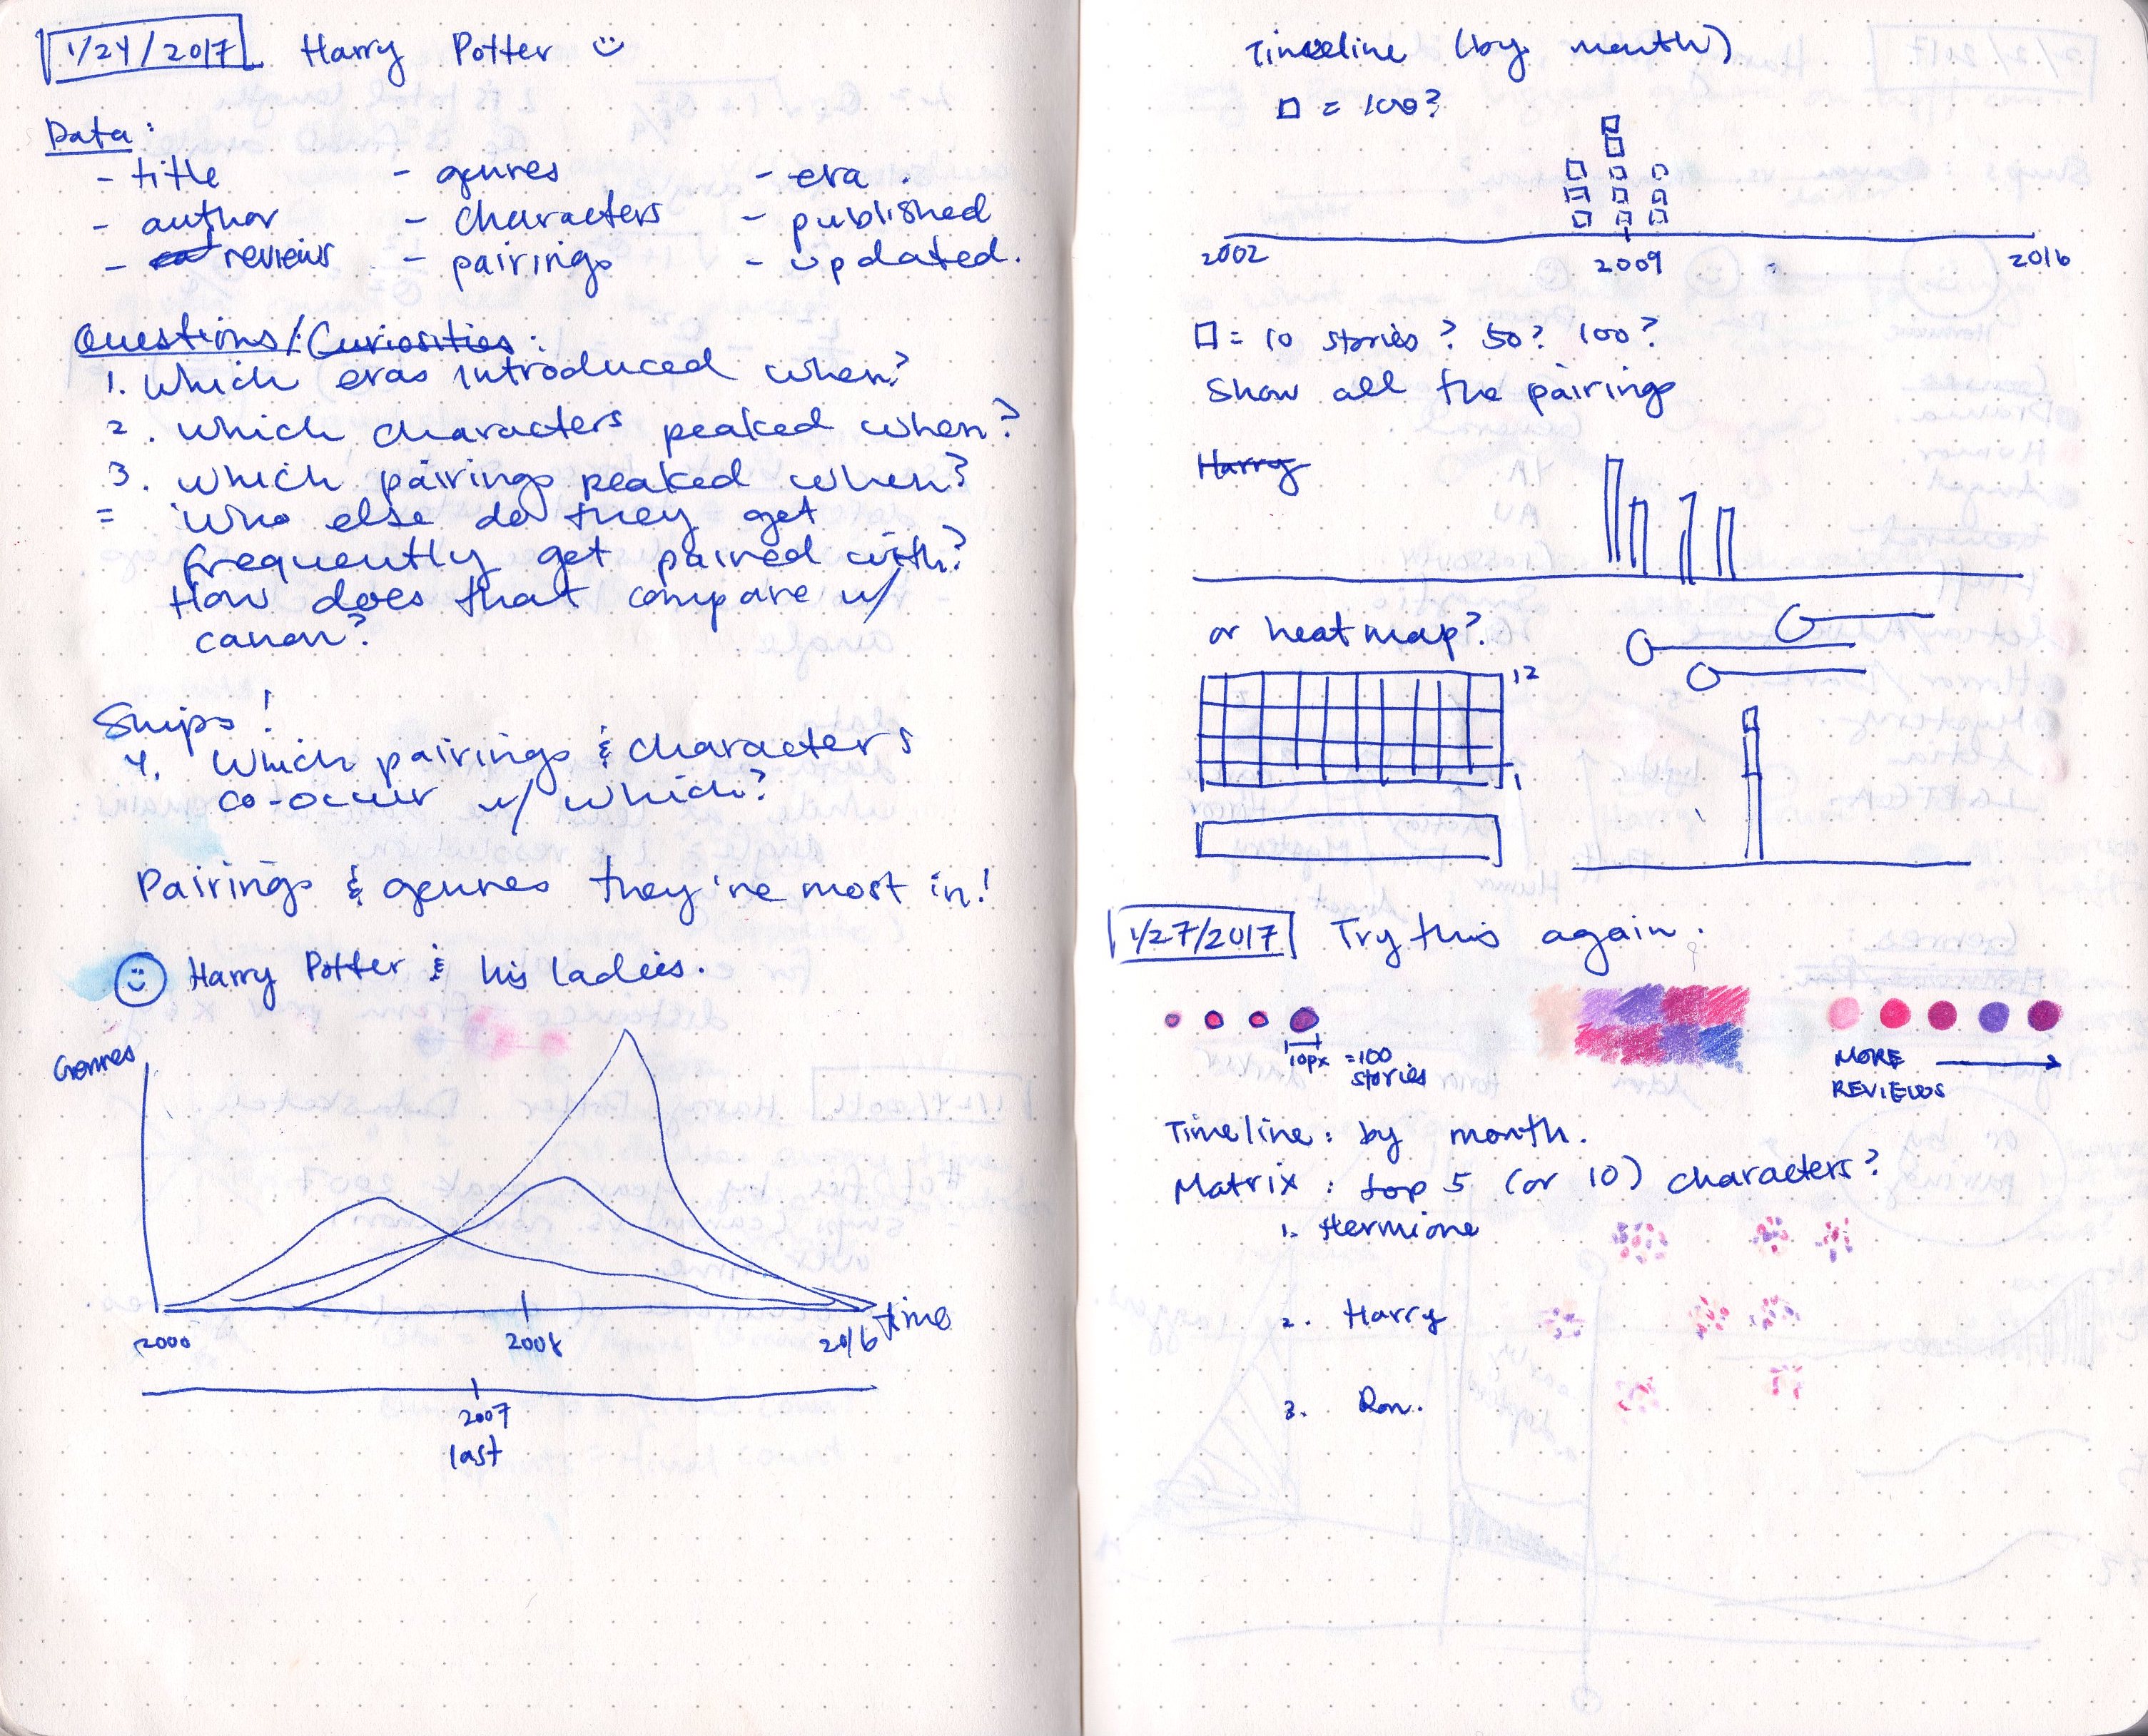 1/24/2017 Harry Potter
Data:
- title - genres - era.
- author - characters - published
- reviews - pairings - updated.
Questions/Curiosities:
1. Which eras introduced when?
2. Which characters peaked when?
3. Which pairings peaked when?
= Who else do they get
frequently get paired with?
How does that compare w/
canon?
Ships!
4. Which pairings & characters
co-occur w/ which?
Pairings & genres they're most in!
Harry Potter & his ladies.
Genres
time
2000 2008 2016
2007
last
Timeline (by month)
□ = 100?
2002 2009 2016
□ = 10 stories? 50? 100?
Show all the pairings
Harry
or heatmap?
12
1
1/27/2017 Try this again.
10px = 100
stories
MORE
REVIEWS
Timeline: by month.
Matrix: top 5 (or 10) characters?
1. Hermione
2. Harry
3. Ron.